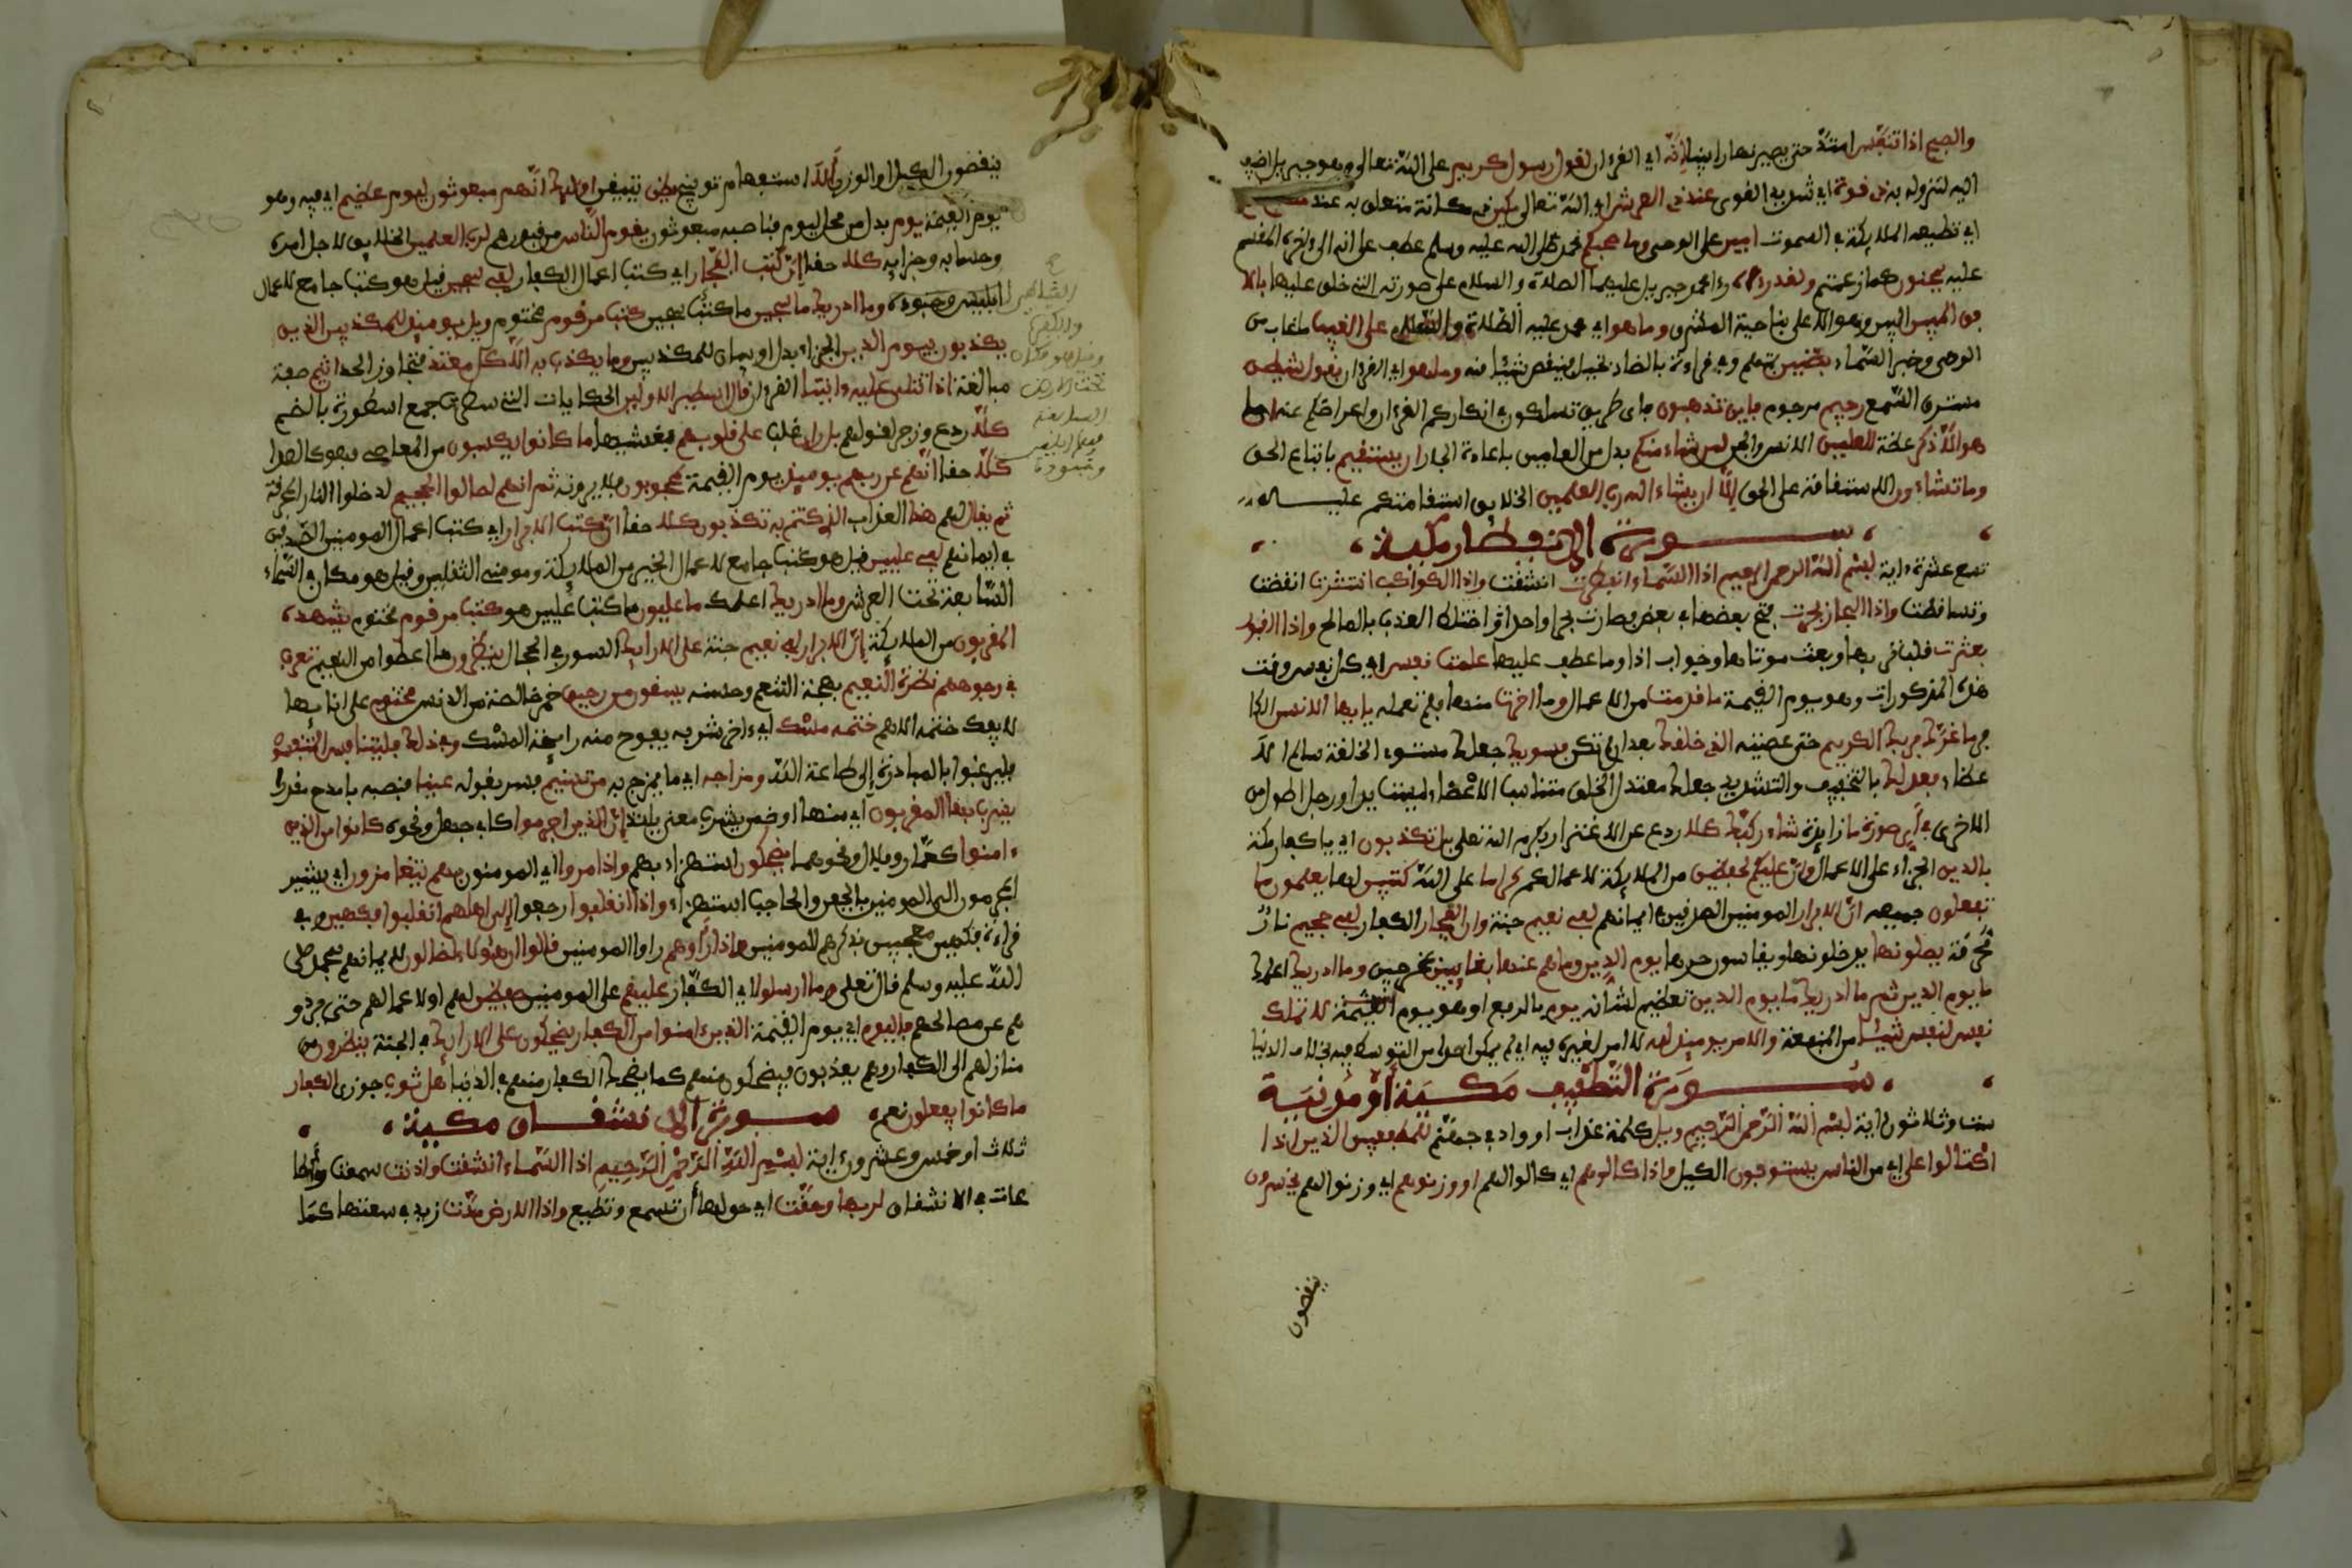 والصبح اذا تنفس امتد حتى يصير نهارا بينا انه اي القرءان لقول رسول كريم على الله تعالى وهو جبريل اضيف
اليه لنزوله به ذي قوة اي شديد القوى عند ذي العرش اي الله تعالى مكين ذي مكانة متعلق به عند مطاع ثم
اي تطيعه الملايكة في السموت امين على الوحي وما صاحبكم محمد صلى الله عليه وسلم عطف على انه الى ءاخره المقسم
عليه بمجنون كما زعمتم ولقد رءاه رءا محمد جبريل عليهما الصلاة والسلام على صورته التي خلق عليها بالا
فق المبين البين وهو الاعلى بناحية المشرق وما هو اي محمد عليه الصلاة والسلام على الغيب ما غاب من
الوحي وخبر السماء بضنين بمتهم وفي قراءة بالضاد بخيل فينقص شيئا منه وما هو اي القرءان بقول شيطن
مسترق السمع رجيم مرجوم فاين تذهبون فاي طريق تسلكون في انكاركم القرءان واعراضكم عنه ان
هو الا ذكر عظة للعلمين الانس والجن لمن شاء منكم بدل من العالمين باعادة الجار ان يستقيم باتباع الحق
وما تشاءون الاستقامة على الحق الا ان يشاء الله رب العلمين الخلايق استقامتكم عليــــه
ســـــورة الانفطار مكية
تسع عشرة ءاية بسم الله الرحمن الرحيم اذا السماء انفطرت انشقت واذا الكواكب انتثرت انقضت
وتساقطت واذا البحار فجرت فتح بعضها في بعض فصارت بحرا واحدا واختلط العذب بالمالح واذا القبور
بعثرت قلب ترابها وبعث موتاها وجواب اذا وما عطف عليها علمت نفس اي كل نفس وقت
هذه المذكورات وهو يوم القيمة ما قدمت من الاعمال وما اخرت منها فلم تعمله يايها الانسن الكا
فر ما غرك بربك الكريم حتى عصيته الذي خلقك بعد ان لم تكن فسويك جعلك مستوي الخلقة سالم الا
عضاء فعدلك بالتخفيف والتشديد جعلك معتدل الخلق متناسب الاعضاء ليست يد او رجل اطول من
الاخرى في اي صورة ما زايدة شاء ركبك كلا ردع عن الاغترار بكرم الله تعلى بل تكذبون اي يا كفار مكة
بالدين الجزاء على الاعمال وان عليكم لحفظين من الملايكة لاعمالكم كراما على الله كتبين لها يعلمون ما
تفعلون جميعه ان الابرار المومنين الصدقين في ايمانهم لفي نعيم جنة وان الفجار الكفار لفي جحيم نار
محرقة يصلونها يدخلونها ويقاسون حرها يوم الدين وما هم عنها بغايبين بمخرجين وما ادريك اعلمك
ما يوم الدين ثم ما ادريك ما يوم الدين تعظيم لشانه يوم بالرفع اي هو يوم القيمة لا تملك
نفس لنفس شيئا من المنفعة والامر يوميذ لله لا امر لغيره فيه اي لم يمكن احدا من التوسط فيه بخلاف الدنيا
ســـــورة التطفيف مكية او مدنية
ست وثلاثون ءاية بسم الله الرحمن الرحيم ويل كلمة عذاب او واد في جهنم للمطففين الذين اذا
اكتالوا على اي من الناس يستوفون الكيل واذا كالوهم اي كالوا لهم او وزنوهم اي وزنوا لهم يخسرون
ينقصون
ينقصون الكيل او الوزن الا استفهام توبيخ يظن يتيقن اوليك انهم مبعوثون ليوم عظيم اي فيه وهو
يوم القيمة يوم بدل من محل ليوم فناصبه مبعوثون يقوم الناس من قبورهم لرب العلمين الخلايق لاجل امره
وحسابه وجزايه كلا حقا ان كتب الفجار اي كتب اعمال الكفار لفي سجين قيل هو كتب جامع لاعمال
ابليس وجنوده وما ادريك ما سجين ما كتب سجين كتب مرقوم مختوم ويل يوميذ للمكذبين الذين
يكذبون بيوم الدين الجزاء بدل او بيان للمكذبين وما يكذب به الا كل معتد متجاوز الحد اثيم صيغة
مبالغة اذا تتلى عليه ءايتنا القرءان قال اسطير الاولين الحكايات التي سطرت جمع اسطورة بالضم
كلا ردع وزجر لقولهم بل ران غلب على قلوبهم فغشيها ما كانوا يكسبون من المعاصي فهو كالصدا
كلا حقا انهم عن ربهم يوميذ يوم القيمة لمحجوبون فلا يرونه ثم انهم لصالوا الجحيم لداخلوا النار المحرقة
ثم يقال لهم هذا العذاب الذي كنتم به تكذبون كلا حقا ان كتب الابرار اي كتب اعمال المومنين الصدقين
في ايمانهم لفي عليين قيل هو كتب جامع لاعمال الخير من الملايكة ومومني الثقلين وقيل هو مكان في السماء
السابعة تحت العرش وما ادريك اعلمك ما عليون ما كتب عليين هو كتب مرقوم مختوم يشهده
المقربون من الملايكة ان الابرار لفي نعيم جنة على الارايك السرر في الحجال ينظرون ما اعطوا من النعيم تعرف
في وجوههم نضرة النعيم بهجة التنعم وحسنه يسقون من رحيق خمر خالصة من الدنس مختوم على انايها
لا يفك ختمه الا هم ختمه مسك اي ءاخر شربه يفوح منه رايحة المسك وفي ذلك فليتنافس المتنفسون
فليرغبوا بالمبادرة الى طاعة الله ومزاجه اي ما يمزج به من تسنيم فسر بقوله عينا فنصبه بامدح مقدرا
يشرب بها المقربون اي منها او ضمن يشرب معنى يلتذ ان الذين اجرموا كابي جهل ونحوه كانوا من الذين
ءامنوا كعمار وبلال ونحوهما يضحكون استهزاء بهم واذا مروا اي المومنون بهم يتغامزون اي يشير
المجرمون الى المومنين بالجفن والحاجب استهزاء واذا انقلبوا رجعوا الى اهلهم انقلبوا فكهين وفي
قراءة فكهين معجبين بذكرهم للمومنين واذا راوهم راوا المومنين قالوا ان هؤلاء لضالون لايمانهم بمحمد صلى
الله عليه وسلم قال تعلى وما ارسلوا اي الكفار عليهم على المومنين حفظين لهم او لاعمالهم حتى يردو
هم عن مصالحهم فاليوم اي يوم القيمة الذين ءامنوا من الكفار يضحكون على الارايك في الجنة ينظرون من
منازلهم الى الكفار وهم يعذبون فيضحكون منهم كما يضحك الكفار منهم في الدنيا هل ثوب جوزي الكفار
ما كانوا يفعلون نعم ســـورة الانشقاق مكية
ثلاث او خمس وعشرون ءاية بسم الله الرحمن الرحيم اذا السماء انشقت واذنت سمعت واطا
عت في الانشقاق لربها وحقت اي حق لها ان تسمع وتطيع واذا الارض مدت زيد في سعتها كما
الشياطين
والكفرة
وقيل هو مكان
تحت الارض
السابعة
وهو محل ابليس
وجنوده